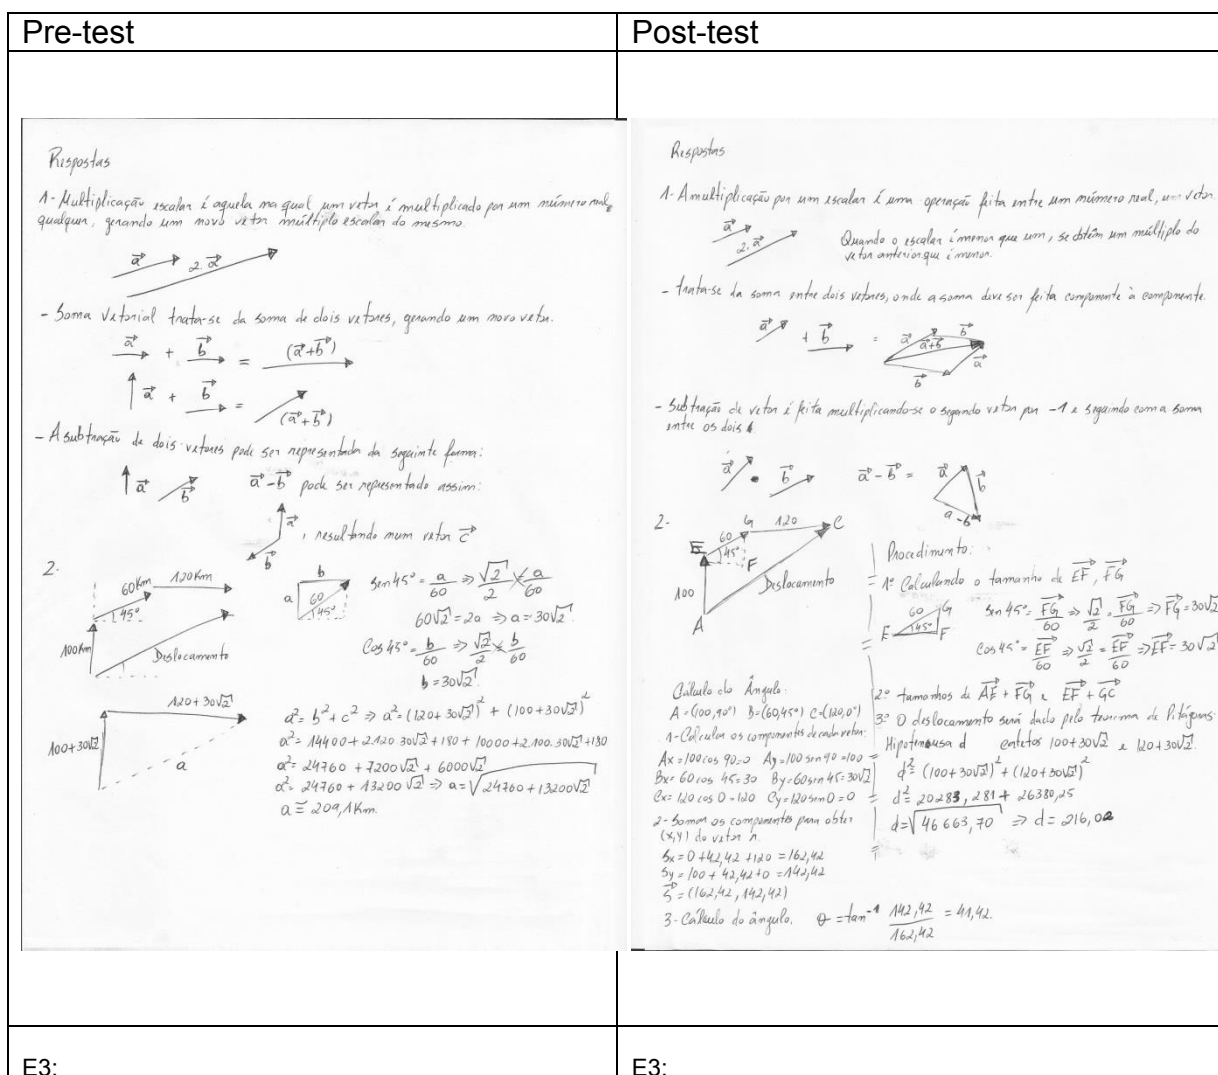 Pre-test
Respostas
1- Multiplicação escalar é aquela na qual um vetor é multiplicado por um número real,
qualquer, gerando um novo vetor múltiplo escalar do mesmo.
a⃗ 2.a⃗
- Soma Vetorial trata-se da soma de dois vetores, gerando um novo vetor.
a⃗ + b⃗ = (a⃗+b⃗)
a⃗ + b⃗ = (a⃗+b⃗)
- A subtração de dois vetores pode ser representada da seguinte forma:
a⃗ b⃗ a⃗-b⃗ pode ser representado assim:
a⃗
b⃗ , resultando num vetor c⃗
2.
60Km 120Km
45°
100Km Deslocamento
b
a 60
45°
sen45° = a/60 ⇒ √2/2 = a/60
60√2 = 2a ⇒ a = 30√2
Cos45° = b/60 ⇒ √2/2 = b/60
b = 30√2
120+30√2
100+30√2 a
a² = b² + c² ⇒ a² = (120+30√2)² + (100+30√2)²
a² = 14400 + 2.120.30√2 + 180 + 10000 + 2.100.30√2 + 180
a² = 24760 + 7200√2 + 6000√2
a² = 24760 + 13200√2 ⇒ a = √24760 + 13200√2
a ≅ 209,1Km.
E3:
Post-test
Respostas
1- A multiplicação por um escalar é uma operação feita entre um número real, um vetor
a⃗ 2.a⃗
Quando o escalar é menor que um, se obtêm um múltiplo do
vetor anterior que é menor.
- trata-se da soma entre dois vetores, onde a soma deve ser feita componente à componente.
a⃗ + b⃗ = a⃗ b⃗ a⃗+b⃗ b⃗ a⃗
- Subtração de vetor é feita multiplicando-se o segundo vetor por -1 e seguindo com a soma
entre os dois
a⃗ b⃗ a⃗-b⃗ = a⃗ b⃗ a-b
2-
G 120 C
E 60 45° F
100 Deslocamento
A
Procedimento:
1º Calculando o tamanho de EF, FG
60 G
E 45° F
sen 45° = FG/60 ⇒ √2/2 = FG/60 ⇒ FG = 30√2
Cos 45° = EF/60 ⇒ √2/2 = EF/60 ⇒ EF = 30√2
2º tamanhos de AE + FG e EF + GC
3º O deslocamento será dado pelo teorema de Pitágoras:
Hipotenusa d catetos 100+30√2 e 120+30√2.
d² = (100+30√2)² + (120+30√2)²
d² = 20283,281 + 26380,25
d = √46663,70 ⇒ d = 216,02
Cálculo do Ângulo:
A = (100,90°) B = (60,45°) C = (120,0°)
1- Calcular os componentes de cada vetor:
Ax = 100 cos 90 = 0 Ay = 100 sen 90 = 100
Bx = 60 cos 45 = 30 By = 60 sen 45 = 30√2
Cx = 120 cos 0 = 120 Cy = 120 sen 0 = 0
2- Somar os componentes para obter
(x,y) do vetor
Sx = 0 + 42,42 + 120 = 162,42
Sy = 100 + 42,42 + 0 = 142,42
S⃗ = (162,42, 142,42)
3- Cálculo do ângulo. θ = tan⁻¹ 142,42/162,42 = 41,42.
E3: